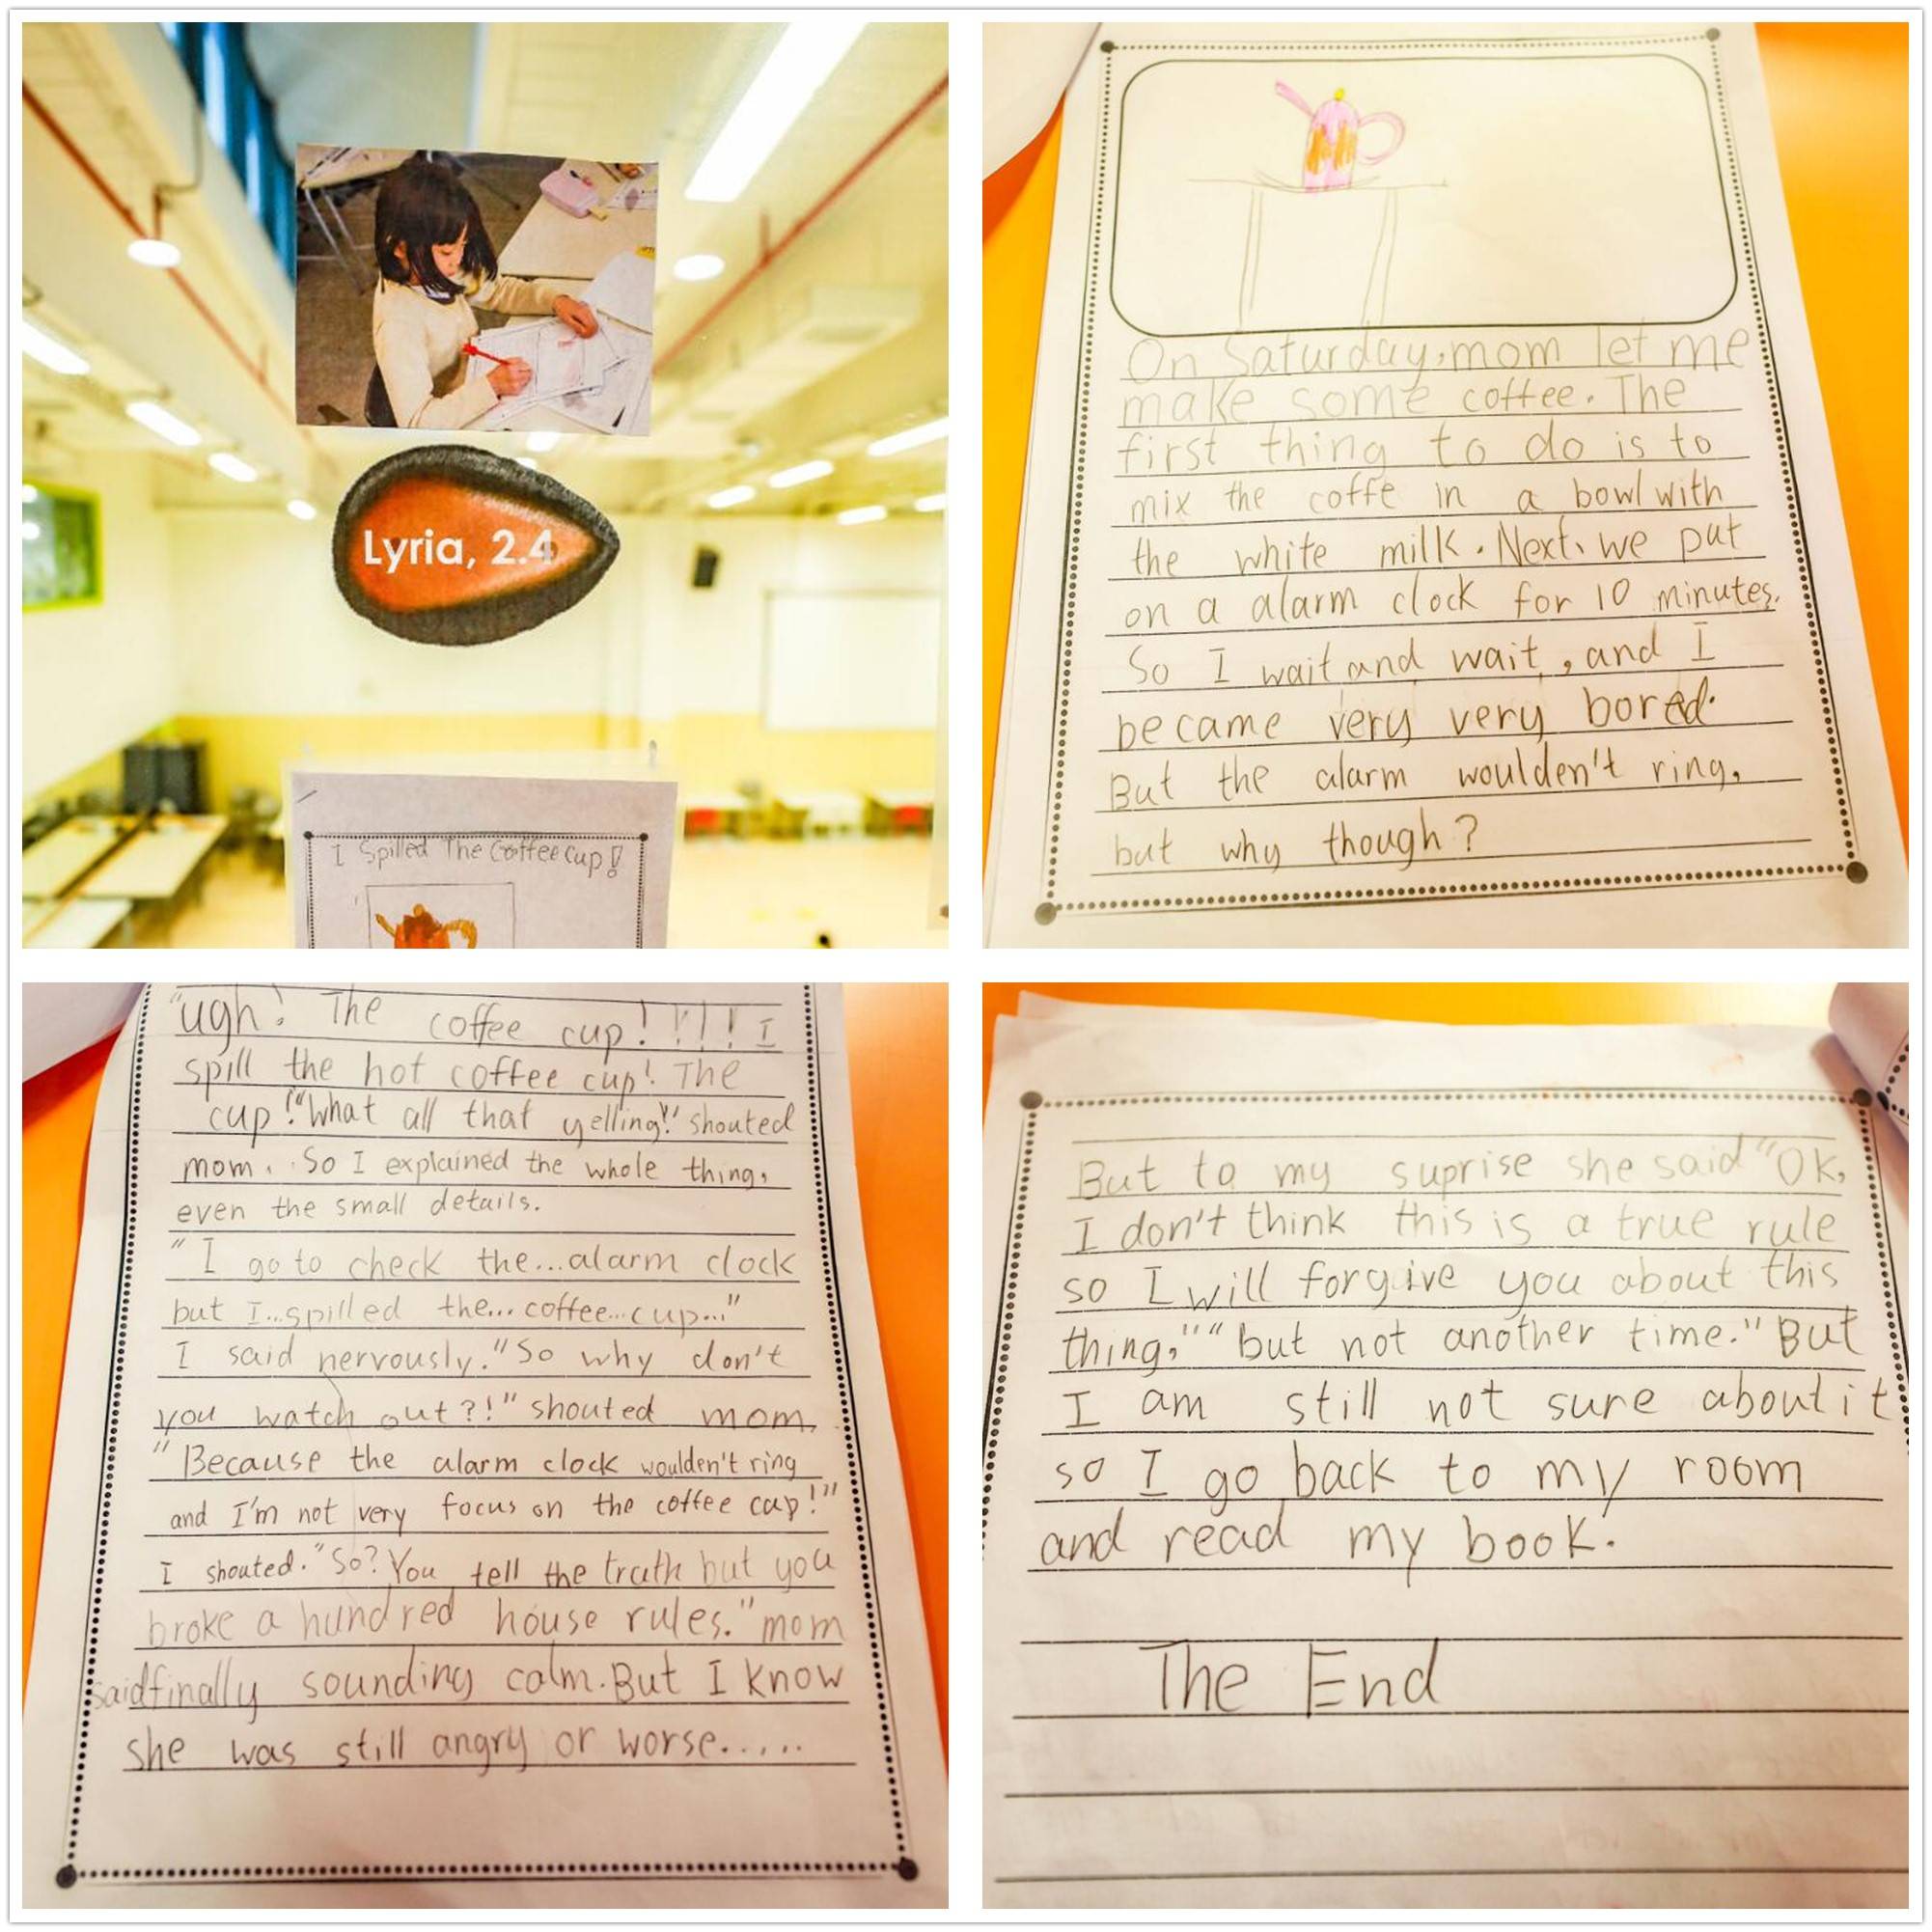 Lyria, 2.4
I Spilled The Coffee Cup!
On Saturday, mom let me
make some coffee. The
first thing to do is to
mix the coffe in a bowl with
the white milk. Next, we put
on a alarm clock for 10 minutes.
So I wait and wait, and I
became very very bored.
But the alarm woulden't ring,
but why though?
"ugh! The coffee cup!!!! I
spill the hot coffee cup! The
cup!"What all that yelling!" shouted
mom. So I explained the whole thing,
even the small details.
"I go to check the...alarm clock
but I...spilled the... coffee...cup..."
I said nervously."So why don't
you watch out?!" shouted mom,
"Because the alarm clock woulden't ring
and I'm not very focus on the coffee cup!"
I shouted."So? You tell the truth but you
broke a hundred house rules."mom
said finally sounding calm. But I know
she was still angry or worse.....
But to my suprise she said "Ok,
I don't think this is a true rule
so I will forgive you about this
thing,""but not another time." But
I am still not sure about it
so I go back to my room
and read my book.
The End